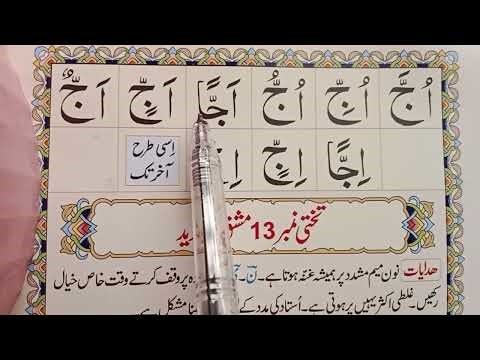 اُجَّ اُجِّ اُجُّ اَجًّا اَجٍّ اَجٌّ
اِجًّا اِجٍّ اسی طرح آخر تک
تختی نمبر 13
ھدایات نون میم مشدد پر ہمیشہ غنّہ ہوتا ہے۔ پر وقف کرتے وقت خاص خیال
رکھیں۔ غلطی اکثر یہیں پر ہوتی ہے۔ اُستاد کی مدد کے مشکل ہے۔